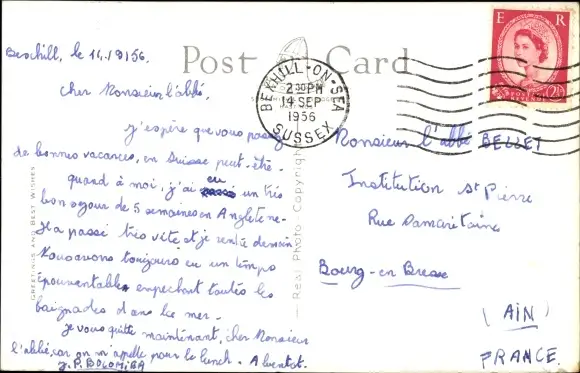 Bexhill, le 14/9/56
Post Card
E R
2½D
BEXHILL-ON-SEA
2 30 PM
14 SEP
1956
SUSSEX
Cher Monsieur l'abbé,
J'espère que vous passez
de bonnes vacances, en Suisse peut-être.
quand à moi, j'ai eu un très
bon séjour de 5 semaines en Angleterre.
Il a passé très vite et je rentre demain
Nous avons toujours eu un temps
épouvantable empechant toutes les
baignades dans la mer.
Je vous quitte maintenant, cher Monsieur
l'abbé, car on m'appelle pour le lunch. A bientôt.
J. P. BOLOMIBA
GREETINGS AND BEST WISHES
Real Photo Copyright
Monsieur l'abbé BELLET
Institution St Pierre
Rue Samaritaine
Bourg-en Bresse
(AIN)
FRANCE.